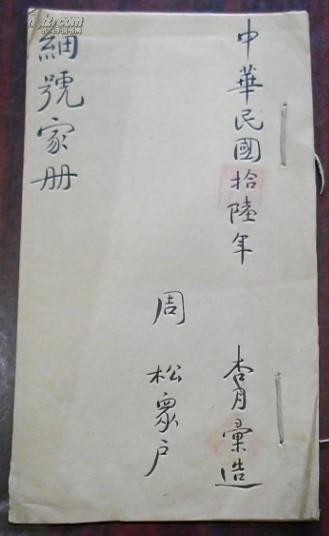 中華民國拾陸年
杏月彙造
周松衆户
細號家册